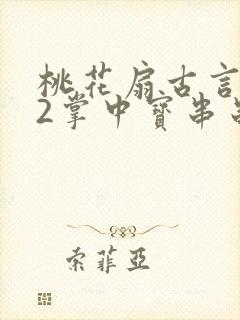 桃花扇古言
2掌中寶串
索菲亞